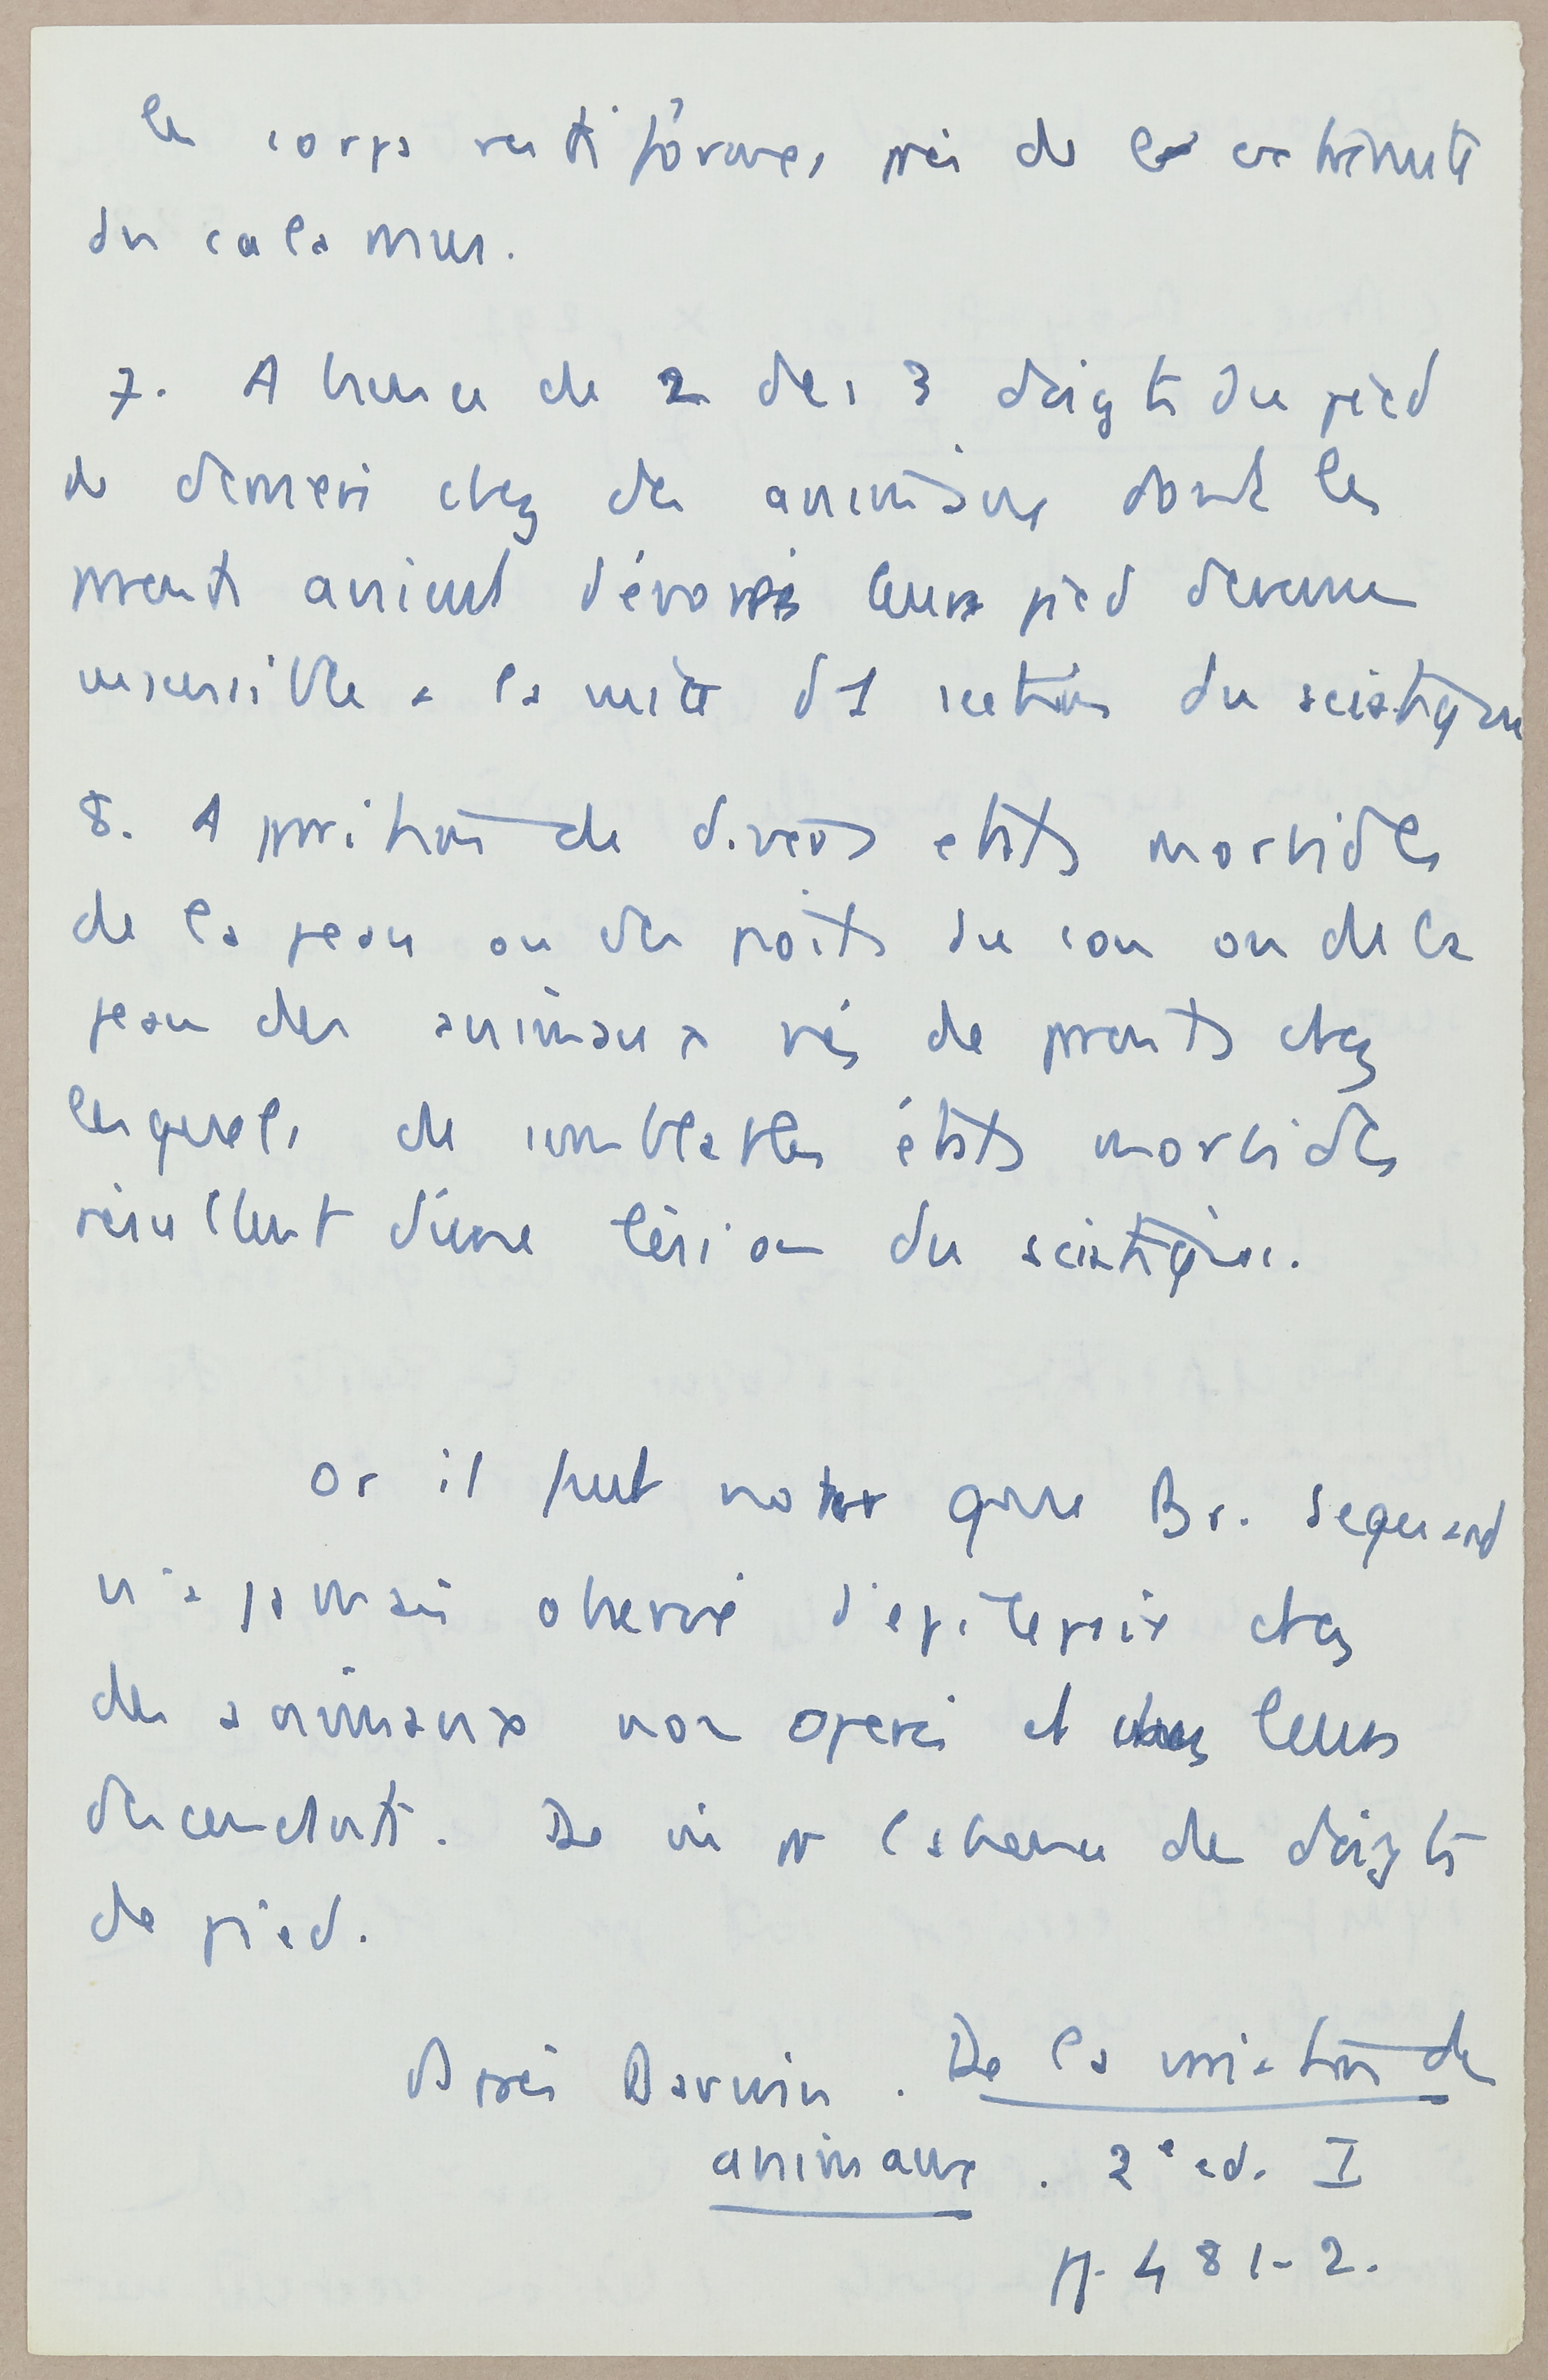 les corps restiformes, près de la extrémité
du calamus.
7. Absence de 2 des 3 doigts du pied
de derrière chez des animaux dont les
parents avaient dévoré leur pied devenu
insensible à la suite d'1 section du sciatique
8. Apparition de divers états morbides
de la peau ou des poils du cou ou de la
peau des animaux nés de parents chez
lesquels de semblables états morbides
résultent d'une lésion du sciatique.
Or il faut noter que Br. Sequard
n'a jamais observé d'épilepsie chez
des animaux non opérés et chez leurs
descendants. De même pr l'absence de doigts
de pied.
Après Darwin. De la variation des
animaux. 2e ed. I
pp. 481-2.